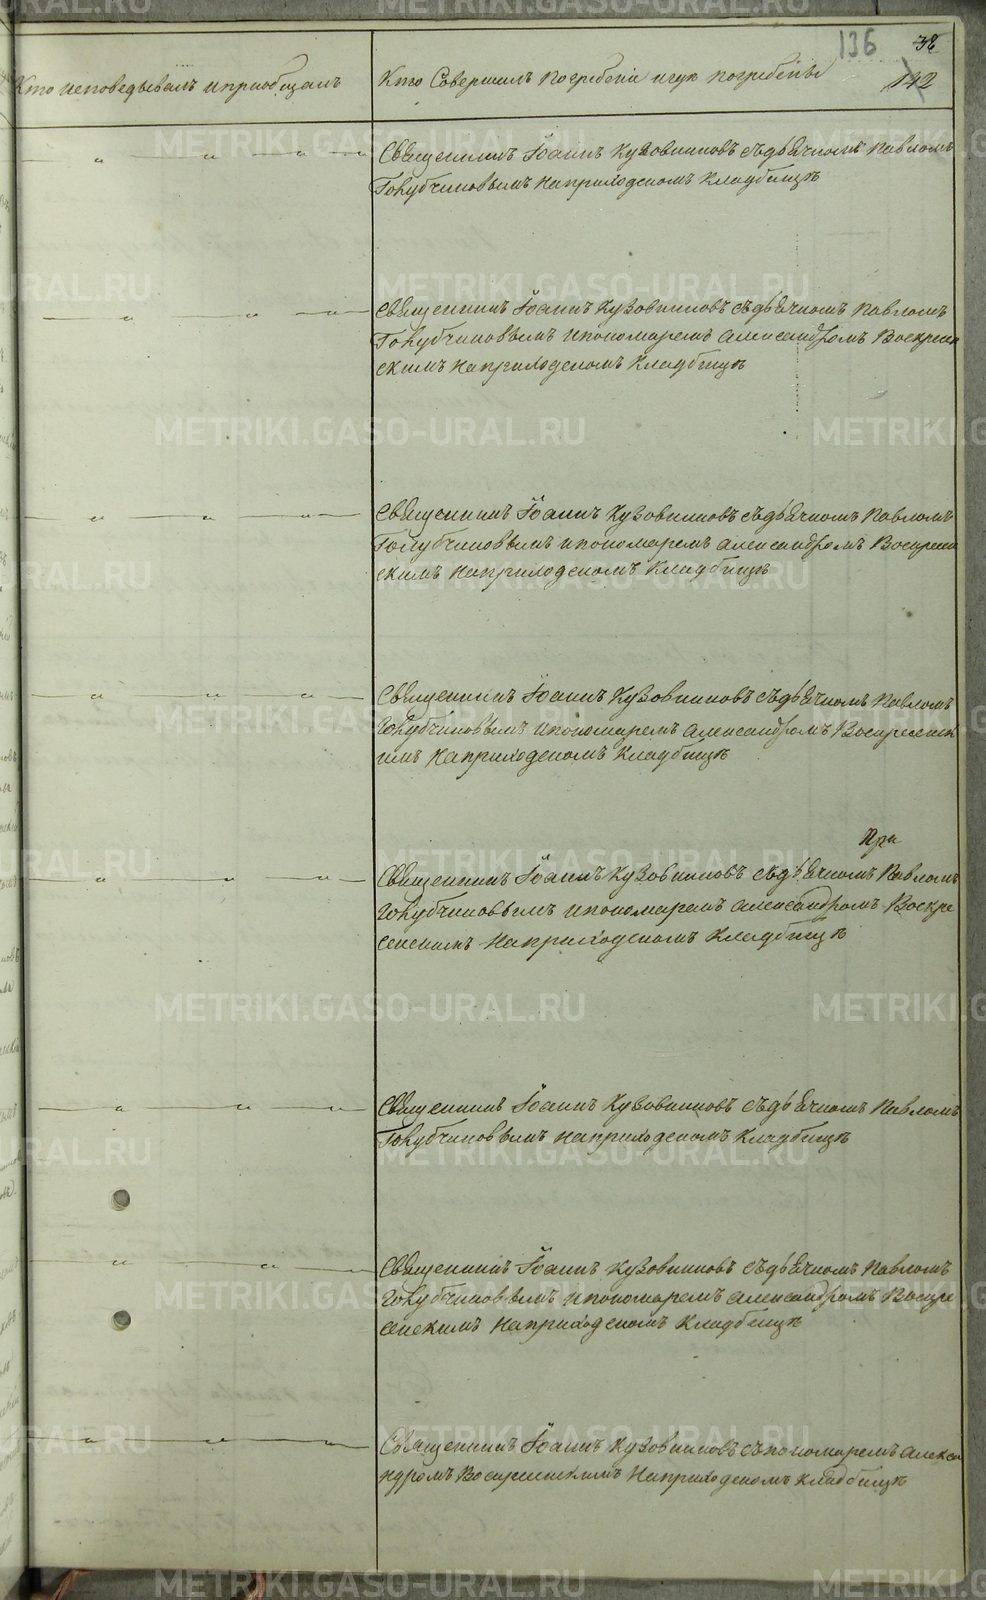 136 38
142
Кто исповедывалъ и приобщалъ
Кто Совершилъ Погребенiе и гдѣ погребены
Священникъ Iоаннъ Кузовниковъ съ дьячкомъ Павломъ
Голубчиковымъ на приходскомъ кладбищѣ
Священникъ Iоаннъ Кузовниковъ съ дьячкомъ Павломъ
Голубчиковымъ и пономаремъ Александромъ Воскресен
скимъ на приходскомъ кладбищѣ
Священникъ Iоаннъ Кузовниковъ съ дьячкомъ Павломъ
Голубчиковымъ и пономаремъ Александромъ Воскресен
скимъ на приходскомъ кладбищѣ
Священникъ Iоаннъ Кузовниковъ съ дьячкомъ Павломъ
Голубчиковымъ и пономаремъ Александромъ Воскресенск
имъ на приходскомъ кладбищѣ
При
Священникъ Iоаннъ Кузовниковъ съ дьячкомъ Павломъ
Голубчиковымъ и пономаремъ Александромъ Воскре
сенскимъ на приходскомъ кладбищѣ
Священникъ Iоаннъ Кузовниковъ съ дьячкомъ Павломъ
Голубчиковымъ на приходскомъ кладбищѣ
Священникъ Iоаннъ Кузовниковъ съ дьячкомъ Павломъ
Голубчиковымъ и пономаремъ Александромъ Воскре
сенскимъ на приходскомъ кладбищѣ
Священникъ Iоаннъ Кузовниковъ съ пономаремъ Алекса
ндромъ Воскресенскимъ на приходскомъ кладбищѣ
METRIKI.GASO-URAL.RU